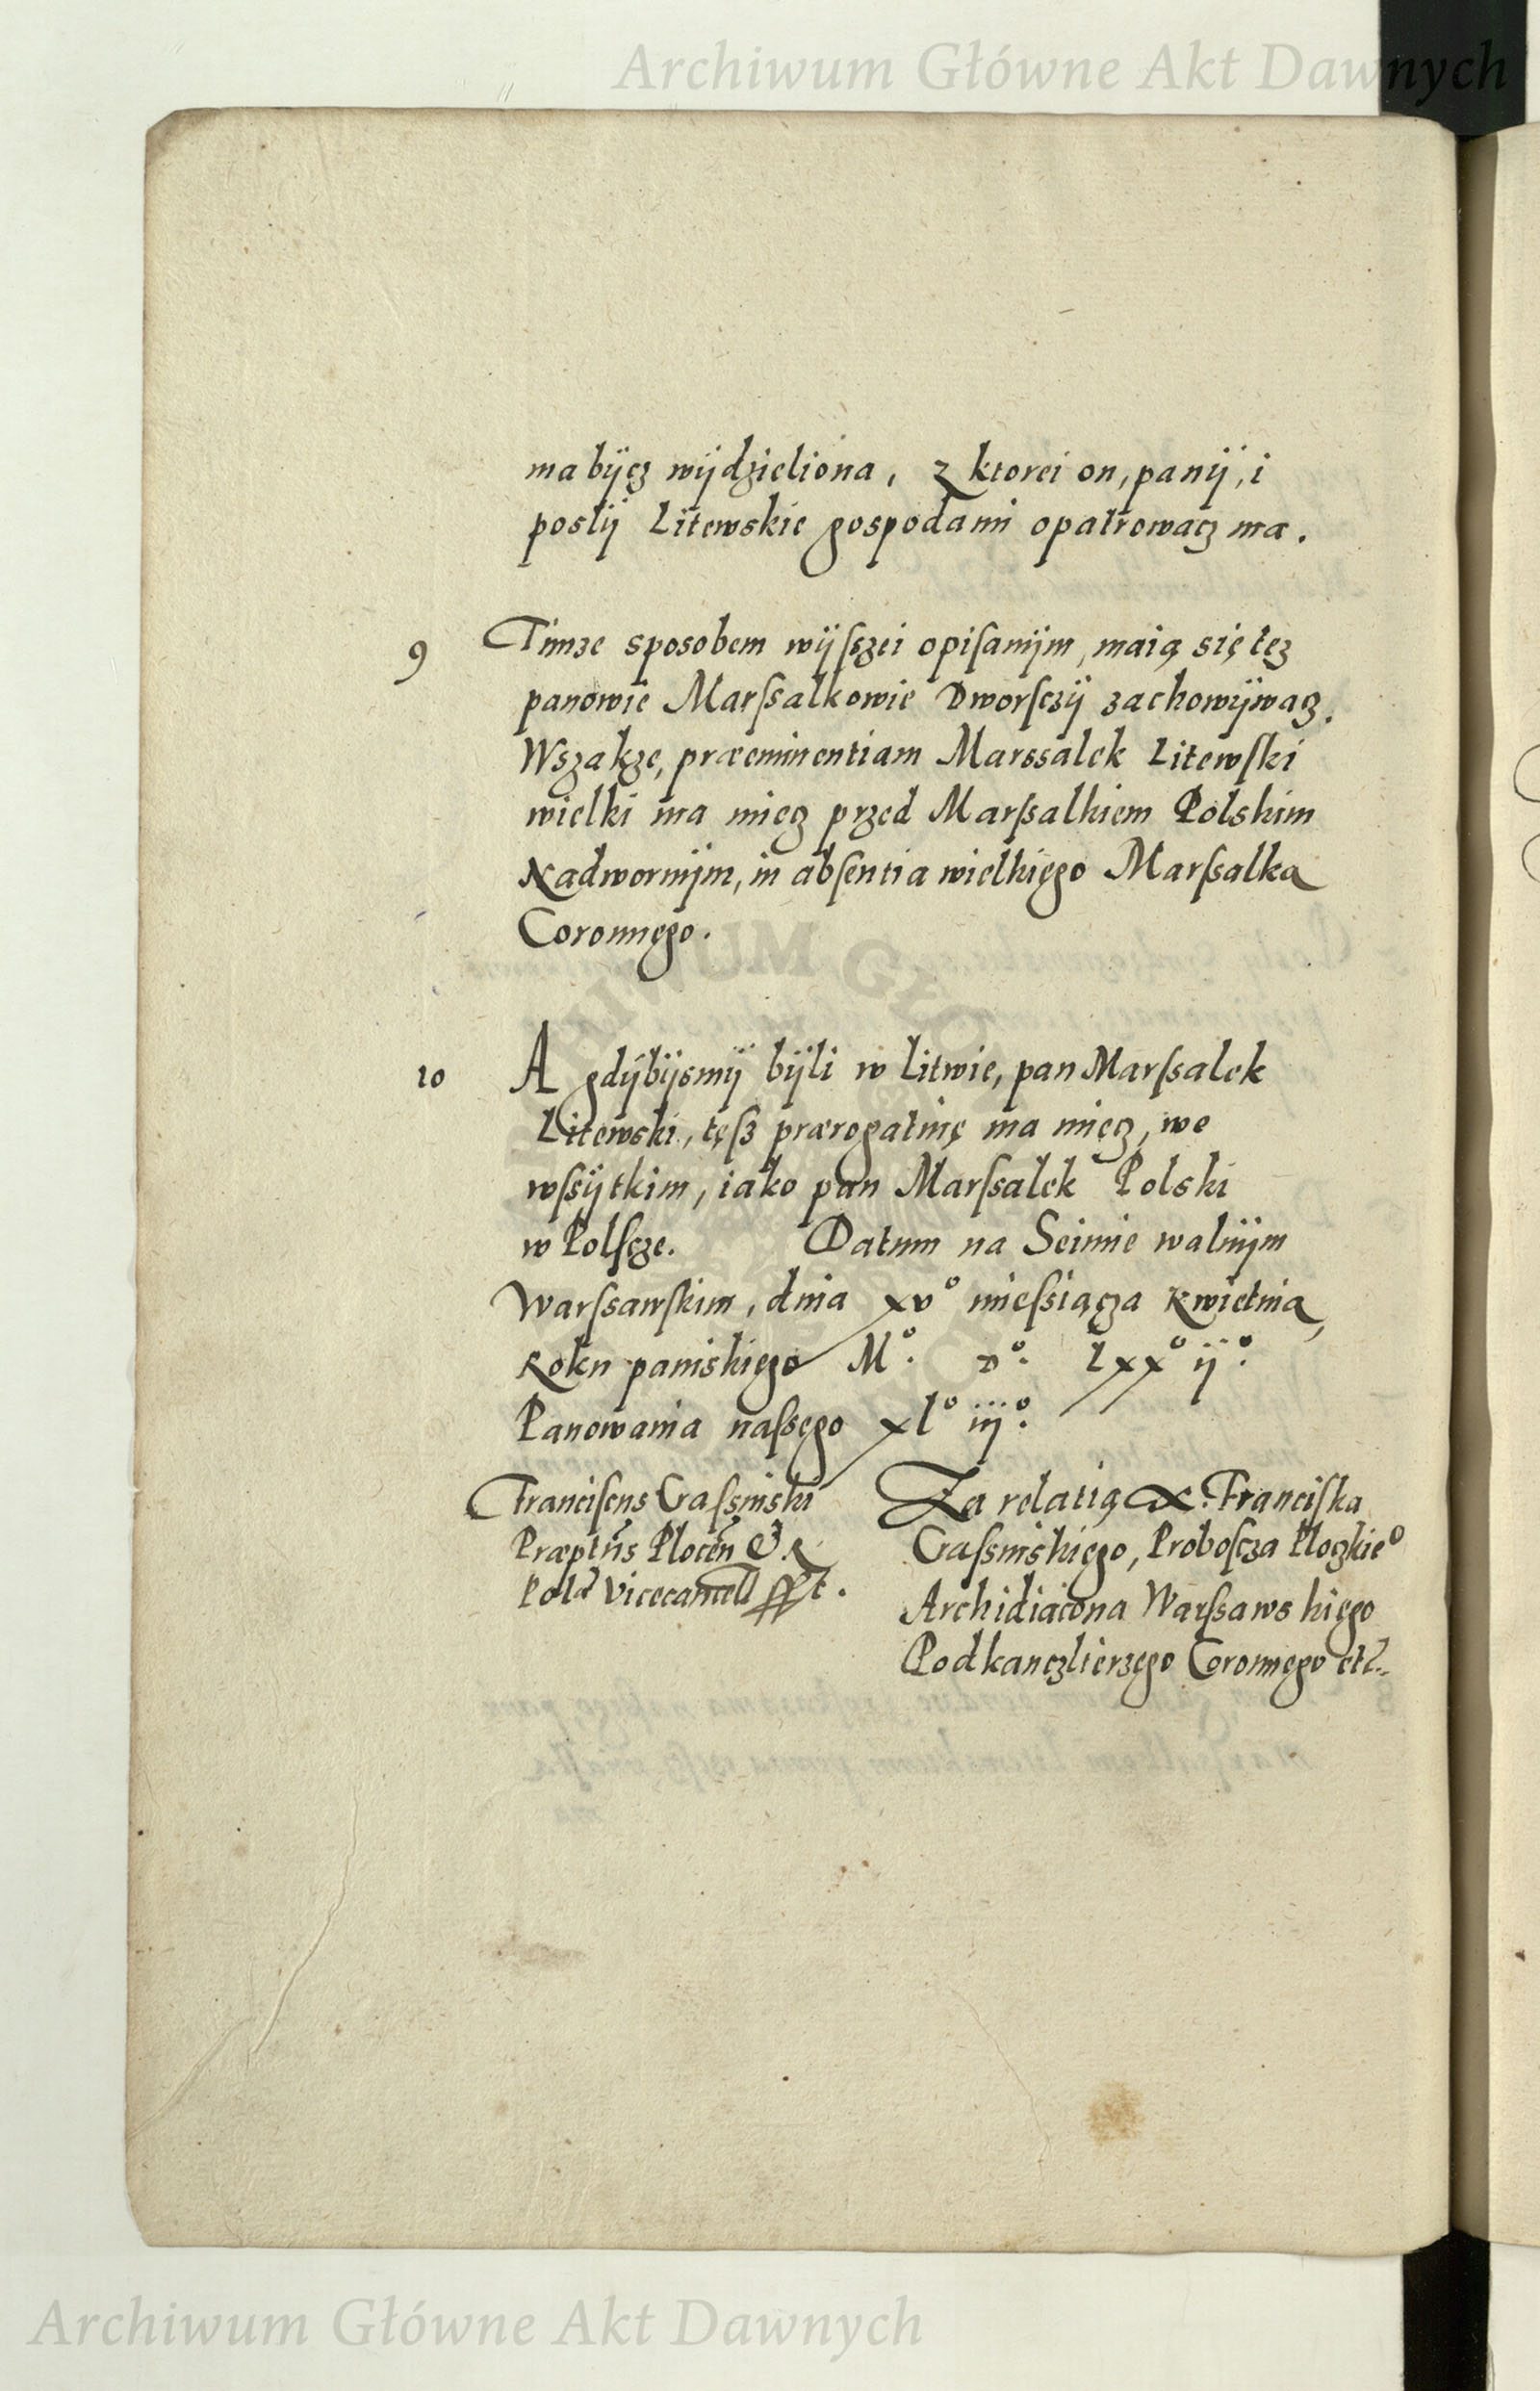 Archiwum Główne Akt Dawnych
ma bÿcz wÿdzieliona, z ktorei on, panÿ, i
poslÿ Litewskie gospodami opatrowacz ma.
9 Timze sposobem wÿſszei opiſanÿm, maią się tez
panowie Marſsalkowie Dworſczÿ zachowÿwacz.
Wszakze, præeminentiam Marssalek Litewſki
wielki ma miecz przed Marſsalkiem Polskim
Nadwornÿm, in abſentia wielkięgo Marſsalka
Coronnęgo.
10 A gdÿbÿsmÿ bÿli w Litwie, pan Marſsalek
Litewski, tęſz prærogatiuę ma miecz, we
wſsÿtkim, iako pan Marſsalek Polski
w Polſcze. Datum na Seimie walnÿm
Warſsawſkim, dnia xvº mieſsiącza Kwietnia,
Roku paniskięgo Mº. Dº. Lxxº ijº.
Panowania naſsęgo xlº iijº.
Franciſcus Craſsinski
Præptũs Plocen̄ & R
Polæ̃ Vicecancell sst.
Za relatią X. Franciſka
Craſsinskięgo, Proboſcza Ploczkieº
Archidiacona Warſsawskięgo
Podkanczlierzęgo Coronnęgo etc̃.
Archiwum Główne Akt Dawnych